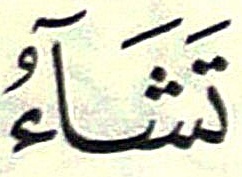 تَشَآءُ